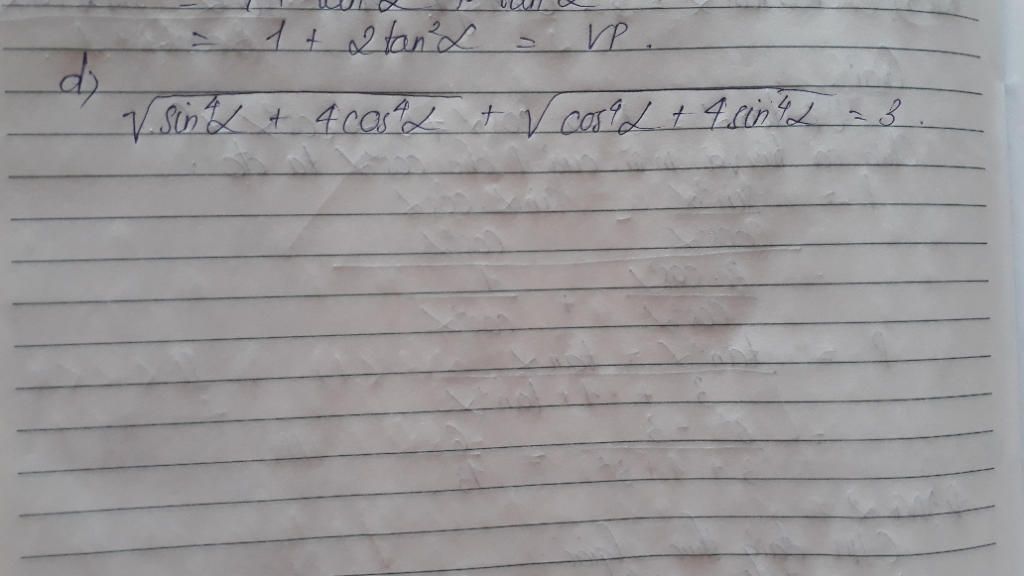 = 1 + 2tan²α = VP.
d)
√(sin⁴α + 4cos⁴α) + √(cos⁴α + 4sin⁴α) = 3.